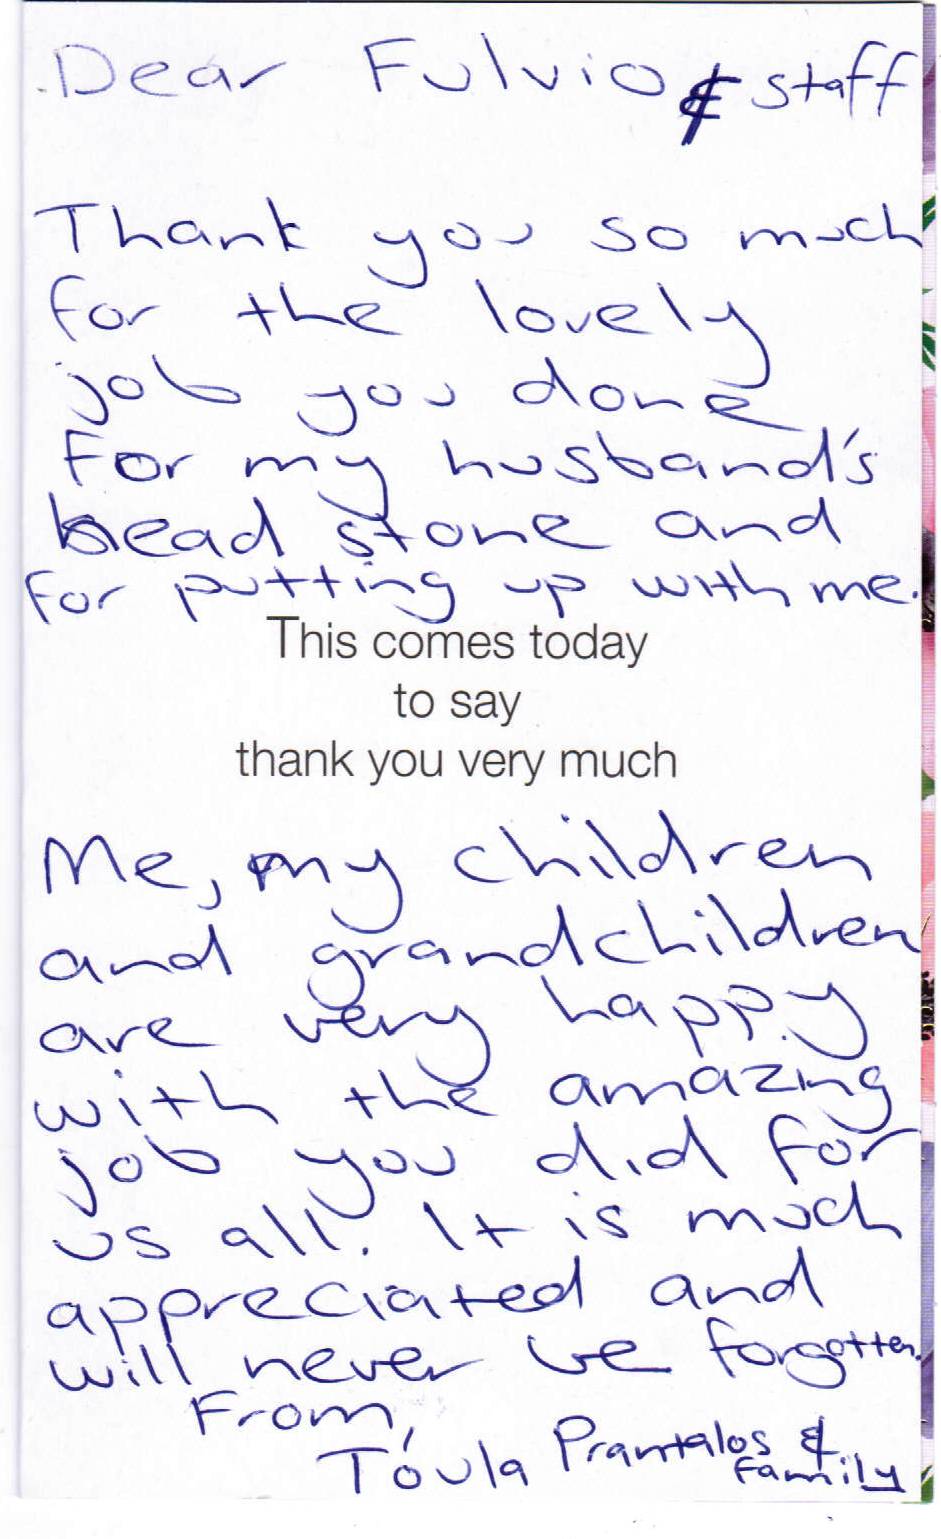 Dear Fulvio & staff
Thank you so much
for the lovely
job you done
For my husband's
head stone and
for putting up with me.
This comes today
to say
thank you very much
Me, my children
and grandchildren
are very happy
with the amazing
job you did for
us all. It is much
appreciated and
will never be forgotten.
From,
Toula Prantalos &
Family